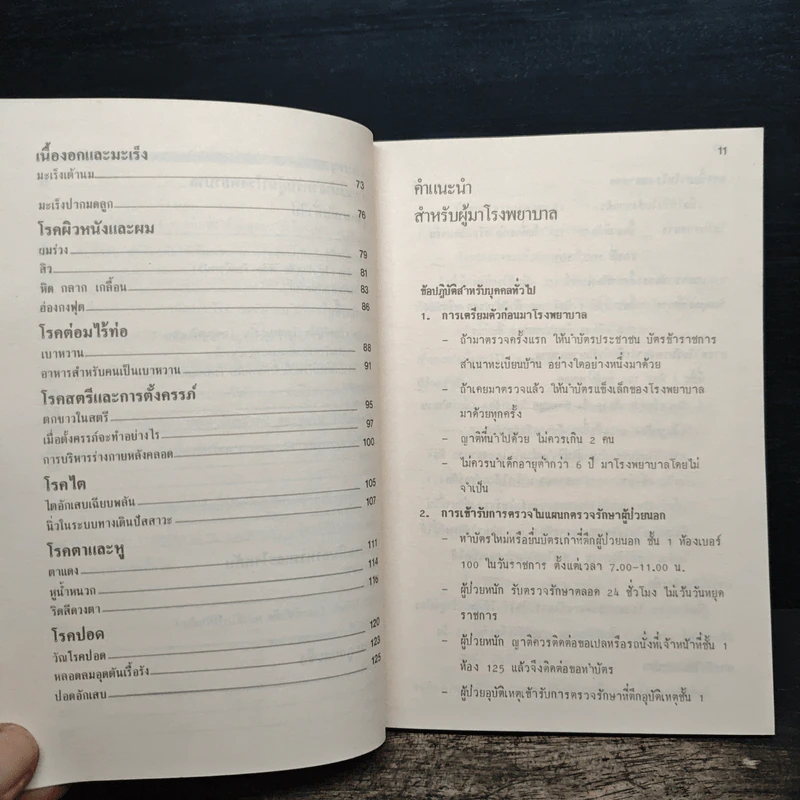 เนื้องอกและมะเร็ง
มะเร็งเต้านม 73
มะเร็งปากมดลูก 76
โรคผิวหนังและผม
ผมร่วง 79
สิว 81
หิด กลาก เกลื้อน 83
ฮ่องกงฟุต 86
โรคต่อมไร้ท่อ
เบาหวาน 88
อาหารสำหรับคนเป็นเบาหวาน 91
โรคสตรีและการตั้งครรภ์
ตกขาวในสตรี 95
เมื่อตั้งครรภ์จะทำอย่างไร 97
การบริหารร่างกายหลังคลอด 100
โรคไต
ไตอักเสบเฉียบพลัน 105
นิ่วในระบบทางเดินปัสสาวะ 107
โรคตาและหู
ตาแดง 111
หูน้ำหนวก 114
ริดสีดวงตา 116
โรคปอด
วัณโรคปอด 120
หลอดลมอุดตันเรื้อรัง 123
ปอดอักเสบ 125
11
คำแนะนำ
สำหรับผู้มาโรงพยาบาล
ข้อปฏิบัติสำหรับบุคคลทั่วไป
1. การเตรียมตัวก่อนมาโรงพยาบาล
– ถ้ามาตรวจครั้งแรก ให้นำบัตรประชาชน บัตรข้าราชการ
สำเนาทะเบียนบ้าน อย่างใดอย่างหนึ่งมาด้วย
– ถ้าเคยมาตรวจแล้ว ให้นำบัตรแข็งเล็กของโรงพยาบาล
มาด้วยทุกครั้ง
– ญาติที่นำไปด้วย ไม่ควรเกิน 2 คน
– ไม่ควรนำเด็กอายุต่ำกว่า 6 ปี มาโรงพยาบาลโดยไม่
จำเป็น
2. การเข้ารับการตรวจในแผนกตรวจรักษาผู้ป่วยนอก
– ทำบัตรใหม่หรือยื่นบัตรเก่าที่ตึกผู้ป่วยนอก ชั้น 1 ห้องเบอร์
100 ในวันราชการ ตั้งแต่เวลา 7.00–11.00 น.
– ผู้ป่วยหนัก รับตรวจรักษาตลอด 24 ชั่วโมง ไม่เว้นวันหยุด
ราชการ
– ผู้ป่วยหนัก ญาติควรติดต่อขอเปลหรือรถนั่งที่เจ้าหน้าที่ชั้น 1
ห้อง 125 แล้วจึงติดต่อขอทำบัตร
– ผู้ป่วยอุบัติเหตุเข้ารับการตรวจรักษาที่ตึกอุบัติเหตุชั้น 1